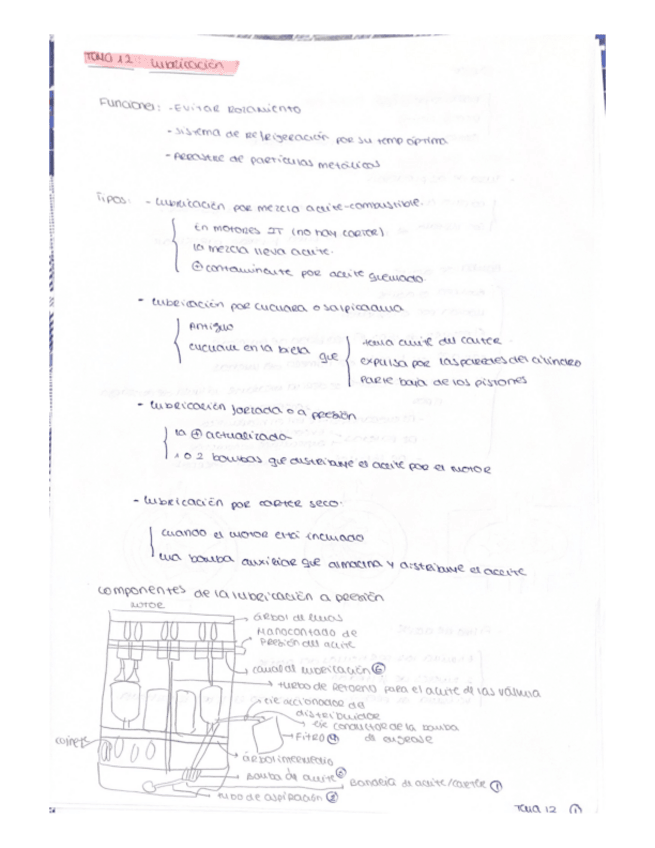 TEMA 12: Lubricación
Funciones: - Evitar rozamiento
- Sistema de refrigeración por su temp óptima
- Arrastre de partículas metálicas
Tipos: - Lubricación por mezcla aceite-combustible.
En motores 2T (no hay carter)
La mezcla lleva aceite.
⊕ contaminante por aceite quemado
- Lubricación por cuchara o salpicadura
Antiguo
cuchara en la biela que
toma aceite del carter
expulsa por las paredes del cilindro
parte baja de los pistones
- Lubricación forzada o a presión
la ⊕ actualizado
1 o 2 bombas que distribuye el aceite por el motor
- Lubricación por carter seco.
cuando el motor está inclinado
una bomba auxiliar que almacena y distribuye el aceite
Componentes de la lubricación a presión
MOTOR
árbol de levas
Manocontacto de
presión del aceite
canal de lubricación ⑥
turbo de retorno para el aceite de las válvula
eje accionador del
distribuidor
eje conductor de la bomba
de engrase
Fitro ④
cojinete
árbol intermedio
Bomba de aceite
Bandeja de aceite/carter ①
tubo de aspiración ②
TEMA 12 ①